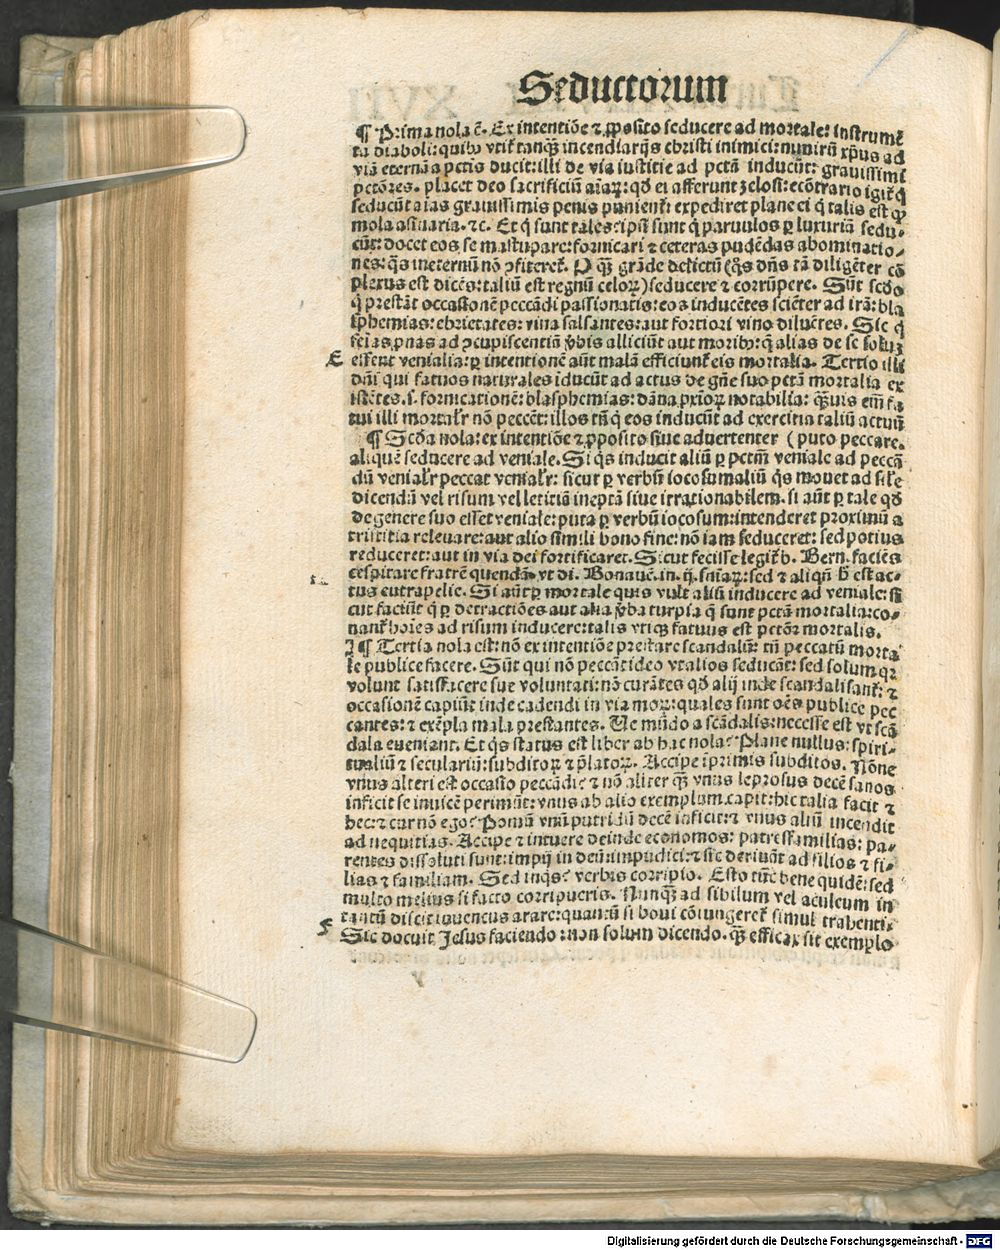 Seductorum
¶ Prima nola ē. Ex intentiōe ⁊ ꝓposito seducere ad mortale: instrumē
ta diaboli: quibꝰ vtit̄ tanqꝫ incendiarijs christi inimici: nam xp̄us ad
viā eternā a pctīs ducit: illi de via iustitie ad pctā inducūt: grauissimi
pctōres. placet deo sacrificiū aīaꝝ: qd̄ ei afferunt zelosi: ecōtrario igit̄ q̄
seducūt aīas grauissimis penis punient̄: expediret plane ei q̄ talis est ꝙ
mola asinaria. ⁊c. Et q̄ sunt tales: ipsi sunt q̄ paruulos ꝑ luxuriā sedu-
cūt: docet eos se mastupare: fornicari ⁊ ceteras pudēdas abominatio-
nes: q̄s ineternū nō ꝯfiteret̄. O qꝫ grāde delictū (q̄s dn̄s tā diligēter cō
plexus est dicēs: taliū est regnū celoꝝ) seducere ⁊ corrūpere. Sūt scd̄o
q̄ prestāt occasionē peccādi passionatis: eos inducētes sciēter ad irā: bla
sphemias: ebrietates: vina salsantes: aut fortiori vino diluētes. Sic q̄
feīas ꝓnas ad ꝯcupiscentiā v̄bis alliciūt aut moribꝰ: q̄ alias de se solūꝫ
E essent venialia: ꝑ intentionē aūt malā efficiunt̄ eis mortalia. Tertio illi
dāni qui fatuos naturales īducūt ad actus de gn̄e suo pctā mortalia ex
istētes. s. fornicationē: blasphemias: dāna ꝓxīoꝝ notabilia: qꝫuis em̄ fa
tui illi mortalr̄ nō peccēt: illos tn̄ q̄ eos inducūt ad exercitia taliū actuū
¶ Scd̄a nola: ex intentiōe ⁊ ꝓposito siue aduertenter (puto peccare.
aliquē seducere ad veniale. Si q̄s inducit aliū ꝑ pctm̄ veniale ad peccā
dū venialr̄ peccat venialr̄: sicut ꝑ verbū iocosum aliū q̄s mouet ad sil̄e
dicendū vel risum vel letitiā ineptā siue irrationabilem. si aūt ꝑ tale qd̄
de genere suo esset veniale: puta ꝑ verbū iocosum: intenderet proximū a
tristitia releuare: aut alio simili bono fine: nō iam seduceret: sed potius
reduceret: aut in via dei fortificaret. Sicut fecisse legit̄ b. Bern. faciēs
cespitare fratrē quendā: vt di. Bonauē. in. ij. sniaꝝ: sed ⁊ aliqn̄ h̄ est ac-
tus eutrapelie. Si aūt ꝑ mortale quis vult aliū inducere ad veniale: si
cut faciūt q̄ ꝑ detractiōes aut alia v̄ba turpia q̄ sunt pctā mortalia: co-
nant̄ hoīes ad risum inducere: talis vtiqꝫ fatuus est pctōr mortalis.
¶ Tertia nola est: nō ex intentiōe prestare scandalū: tn̄ peccatū morta
le publice facere. Sūt qui nō peccāt ideo vt alios seducāt: sed solum qꝛ
volunt satisfacere sue voluntati: nō curātes qd̄ alij inde scandalisant̄: ⁊
occasionē capiūt inde cadendi in via moꝝ: quales sunt oēs publice pec
cantes: ⁊ exēpla mala prestantes. Ue mūdo a scādalis: necesse est vt scā
dala eueniant. Et q̄s status est liber ab hac nola? Plane nullus: spiri-
tualiū ⁊ seculariū: subditoꝝ ⁊ p̄latoꝝ. Accipe īprimis subditos. Nōne
vnus alteri est occasio peccādi: ⁊ nō aliter qꝫ vnus leprosus decē sanos
inficit se inuicē perimūt: vnus ab alio exemplum capit: hic talia facit ⁊
hec: ⁊ cur nō ego? Pomū vnū putridū decē inficit: ⁊ vnus aliū incendit
ad nequitias. Accipe ⁊ intuere deinde economos: patresfamilias: pa-
rentes dissoluti sunt: impij in deū: impudici: ⁊ sic deriuāt ad filios ⁊ fi-
lias ⁊ familiam. Sed inq̄s? verbis corripio. Esto tūc bene quidē: sed
multo melius si facto corripueris. Nunqꝫ ad sibilum vel aculeum in
tantū discit iuuencus arare: quantū si boui cōiungeret̄ simul trahenti.
F Sic docuit Jesus faciendo: non solum dicendo. qꝫ efficax sit exemplo
Digitalisierung gefördert durch die Deutsche Forschungsgemeinschaft - DFG